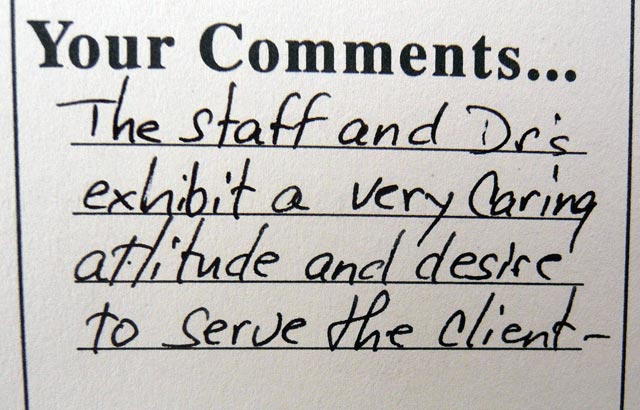 Your Comments...
The staff and Dr's
exhibit a very Caring
attitude and desire
to serve the client-